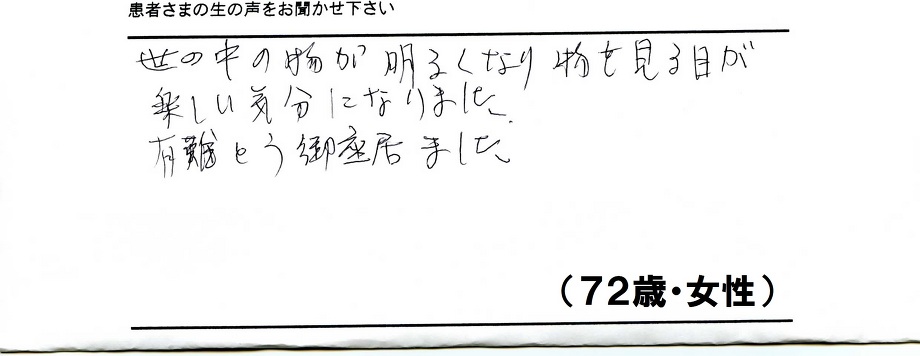 患者さまの生の声をお聞かせ下さい
世の中の物が明るくなり物を見る目が
楽しい気分になりました。
有難とう御座居ました。
（72歳・女性）